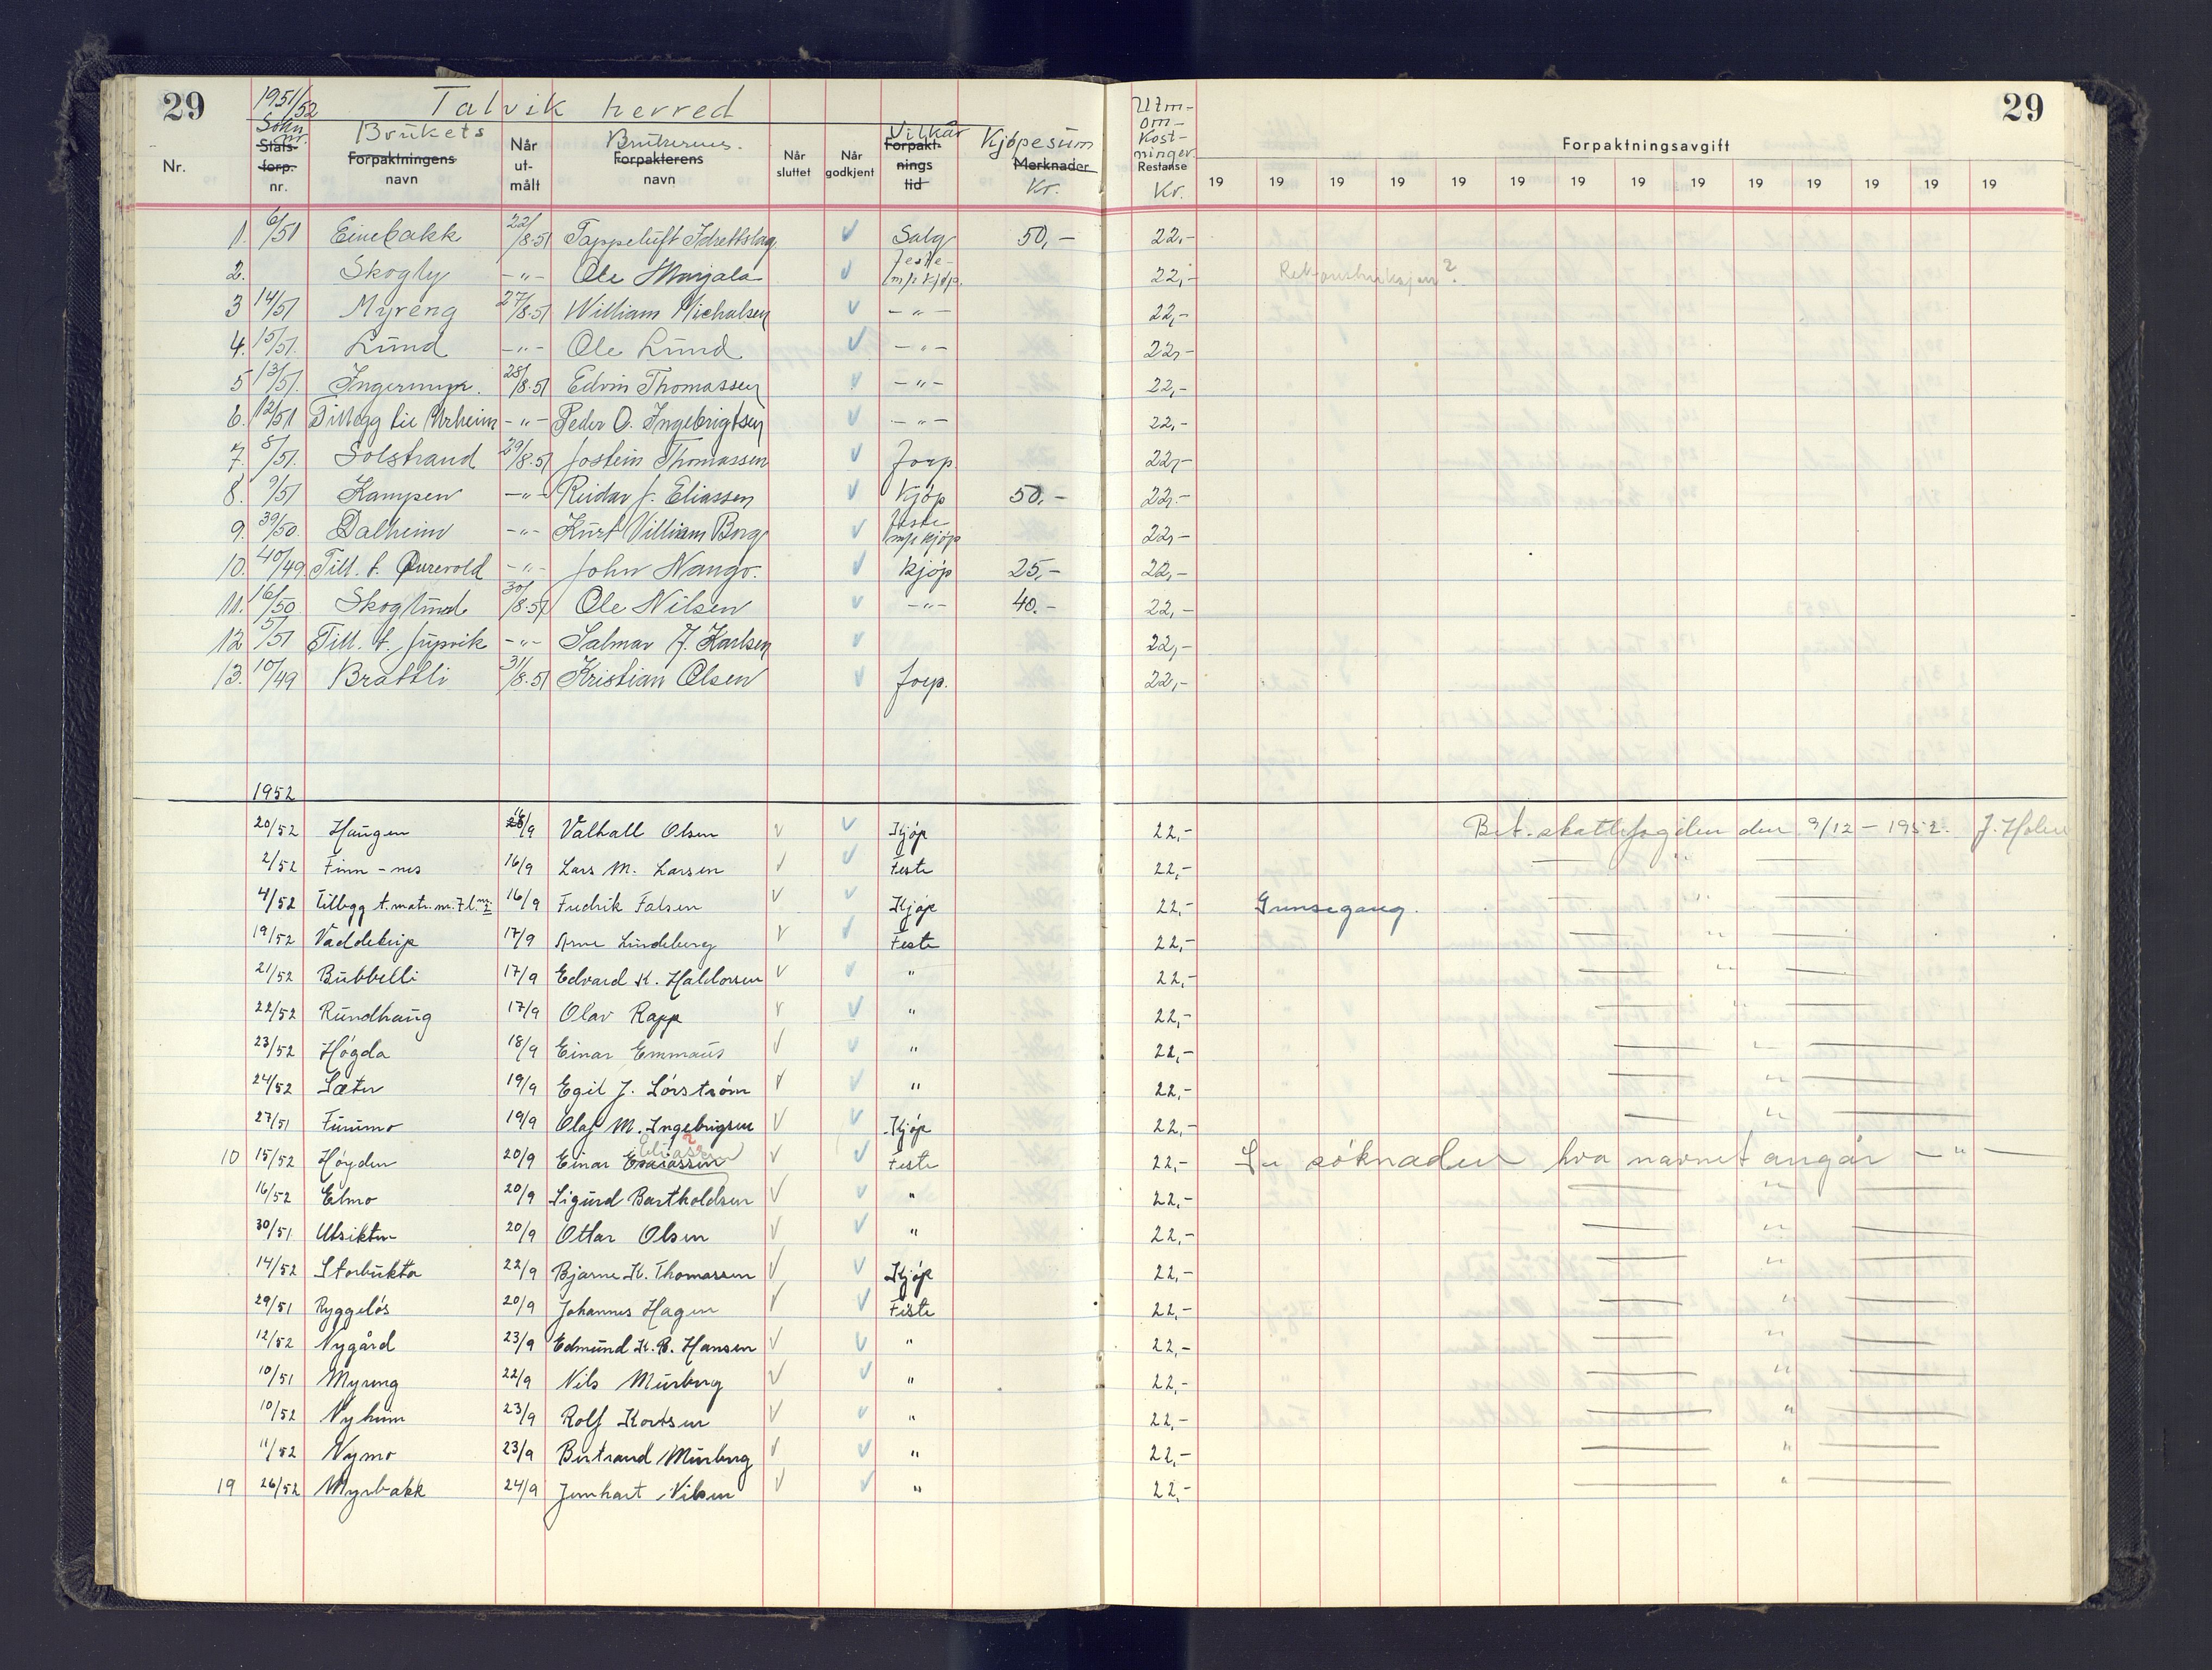 29 1951/52 Talvik herred 29
Nr. Søkn. nr. Stats- forp. nr. Brukets Forpaktningens navn Når ut- målt Brukerens Forpakterens navn Når sluttet Når godkjent Vilkår Forpakt- nings tid Kjøpesum Merknader Kr. Utm- om- kost- ninger Restanse Kr. Forpaktningsavgift
19 19 19 19 19 19 19 19 19 19 19 19 19 19
1. 6/51 Einebakk 22/8.51 Tappeluft Idrettslag Salg 50,- 22,-
2. Skogly -"- Ole Marjala Feste m/r kjøp. 22,- Rekonstruksjon?
3 14/51 Myreng 27/8.51 William Michalsen -"- 22,-
4. 15/51. Lund -"- Ole Lund -"- 22,-
5 13/51. 28/8.51 Edvin Thomassen -"- 22,-
6. 12/51 Tillegg til Urheim -"- Peder O. Ingebrigtsen -"- 22,-
7. 8/51. Solstrand 29/8.51 Jostein Thomassen Forp. 22,-
8. 9/51 Kampen -"- Reidar J. Eliassen Kjøp 50,- 22,-
9. 39/50. Dalheim -"- Kurt Villiam Borg Feste m/r kjøp 22,-
10. 40/49 Till. t. Furevold -"- John Nango. Kjøp 25,- 22,-
11. 16/50 Skoglund 30/8.51 Ole Nilsen -"- 40.- 22,-
12 5/51 Till. t. -"- Salmar J. Karlsen 22,-
13. 10/49 Brattli 31/8.51 Kristian Olsen Forp. 22,-
1952
20/52 Haugen /9 Valhall Olsen Kjøp 22,- Bet. skattefogden den 9/12 - 1952. J. Holm
2/52 Finn-nes 16/9 Lars M. Larsen Feste 22,- — " —
4/52 Tillegg t. matr. nr. 7 l. nr. 16/9 Fredrik Falsen Kjøp 22,- Grensegang. — " —
19/52 Vaddebirje 17/9 Arne Lindeberg Feste 22,- — " —
21/52 Bubbelli 17/9 Edvard K. Haldorsen " 22,- — " —
22/52 Rundhaug 17/9 Olav Rapp " 22,- — " —
23/52 Høgda 18/9 Einar Emmaus " 22,- — " —
24/52 Sæter 19/9 Egil J. Sørstrøm " 22,- — " —
27/51 Furumo 19/9 Olaf M. Ingebrigsen Kjøp 22,- — " —
10 15/52 Høyden 20/9 Einar Esaiassen Eliassen ? Feste 22,- Se søknaden hva navnet angår — " —
16/52 Elmo 20/9 Sigurd Bartholdsen " 22,- — " —
30/51 Utsikten 20/9 Ottar Olsen " 22,- — " —
14/52 Storbukta 22/9 Bjarne K. Thomassen Kjøp 22,- — " —
29/51 Ryggeløs 20/9 Johannes Hagen Feste 22,- — " —
12/52 Nygård 23/9 Edmund K. B. Hansen " 22,- — " —
10/51 Myreng 22/9 Nils Murberg " 22,- — " —
10/52 Nyheim 23/9 Rolf Kortsen " 22,- — " —
11/52 Nymo 23/9 Bertrand Murberg " 22,- — " —
19 26/52 Myrbakk 24/9 Jernhart Nilsen " 22,- — " —